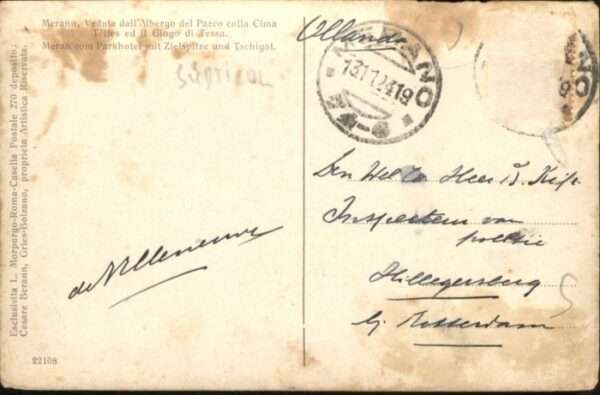 Merano, Veduta dall'Albergo del Parco colla Cima
Tëlles ed il Giogo di Tessa.
Meran vom Parkhotel mit Zielspitze und Tschigat.
SÜDTIROL
Esclusivita I., Morpurgo-Roma-Casella Postale 270 deposito:
Cesare Berann, Gries-Bolzano, proprieta Artistica Riservata.
de Villeneuve
22108
Ollanda
MERANO
13119
O
9
Den Wel Heer
Inspecteur van
politie
Hillegersberg
bij Rotterdam
5